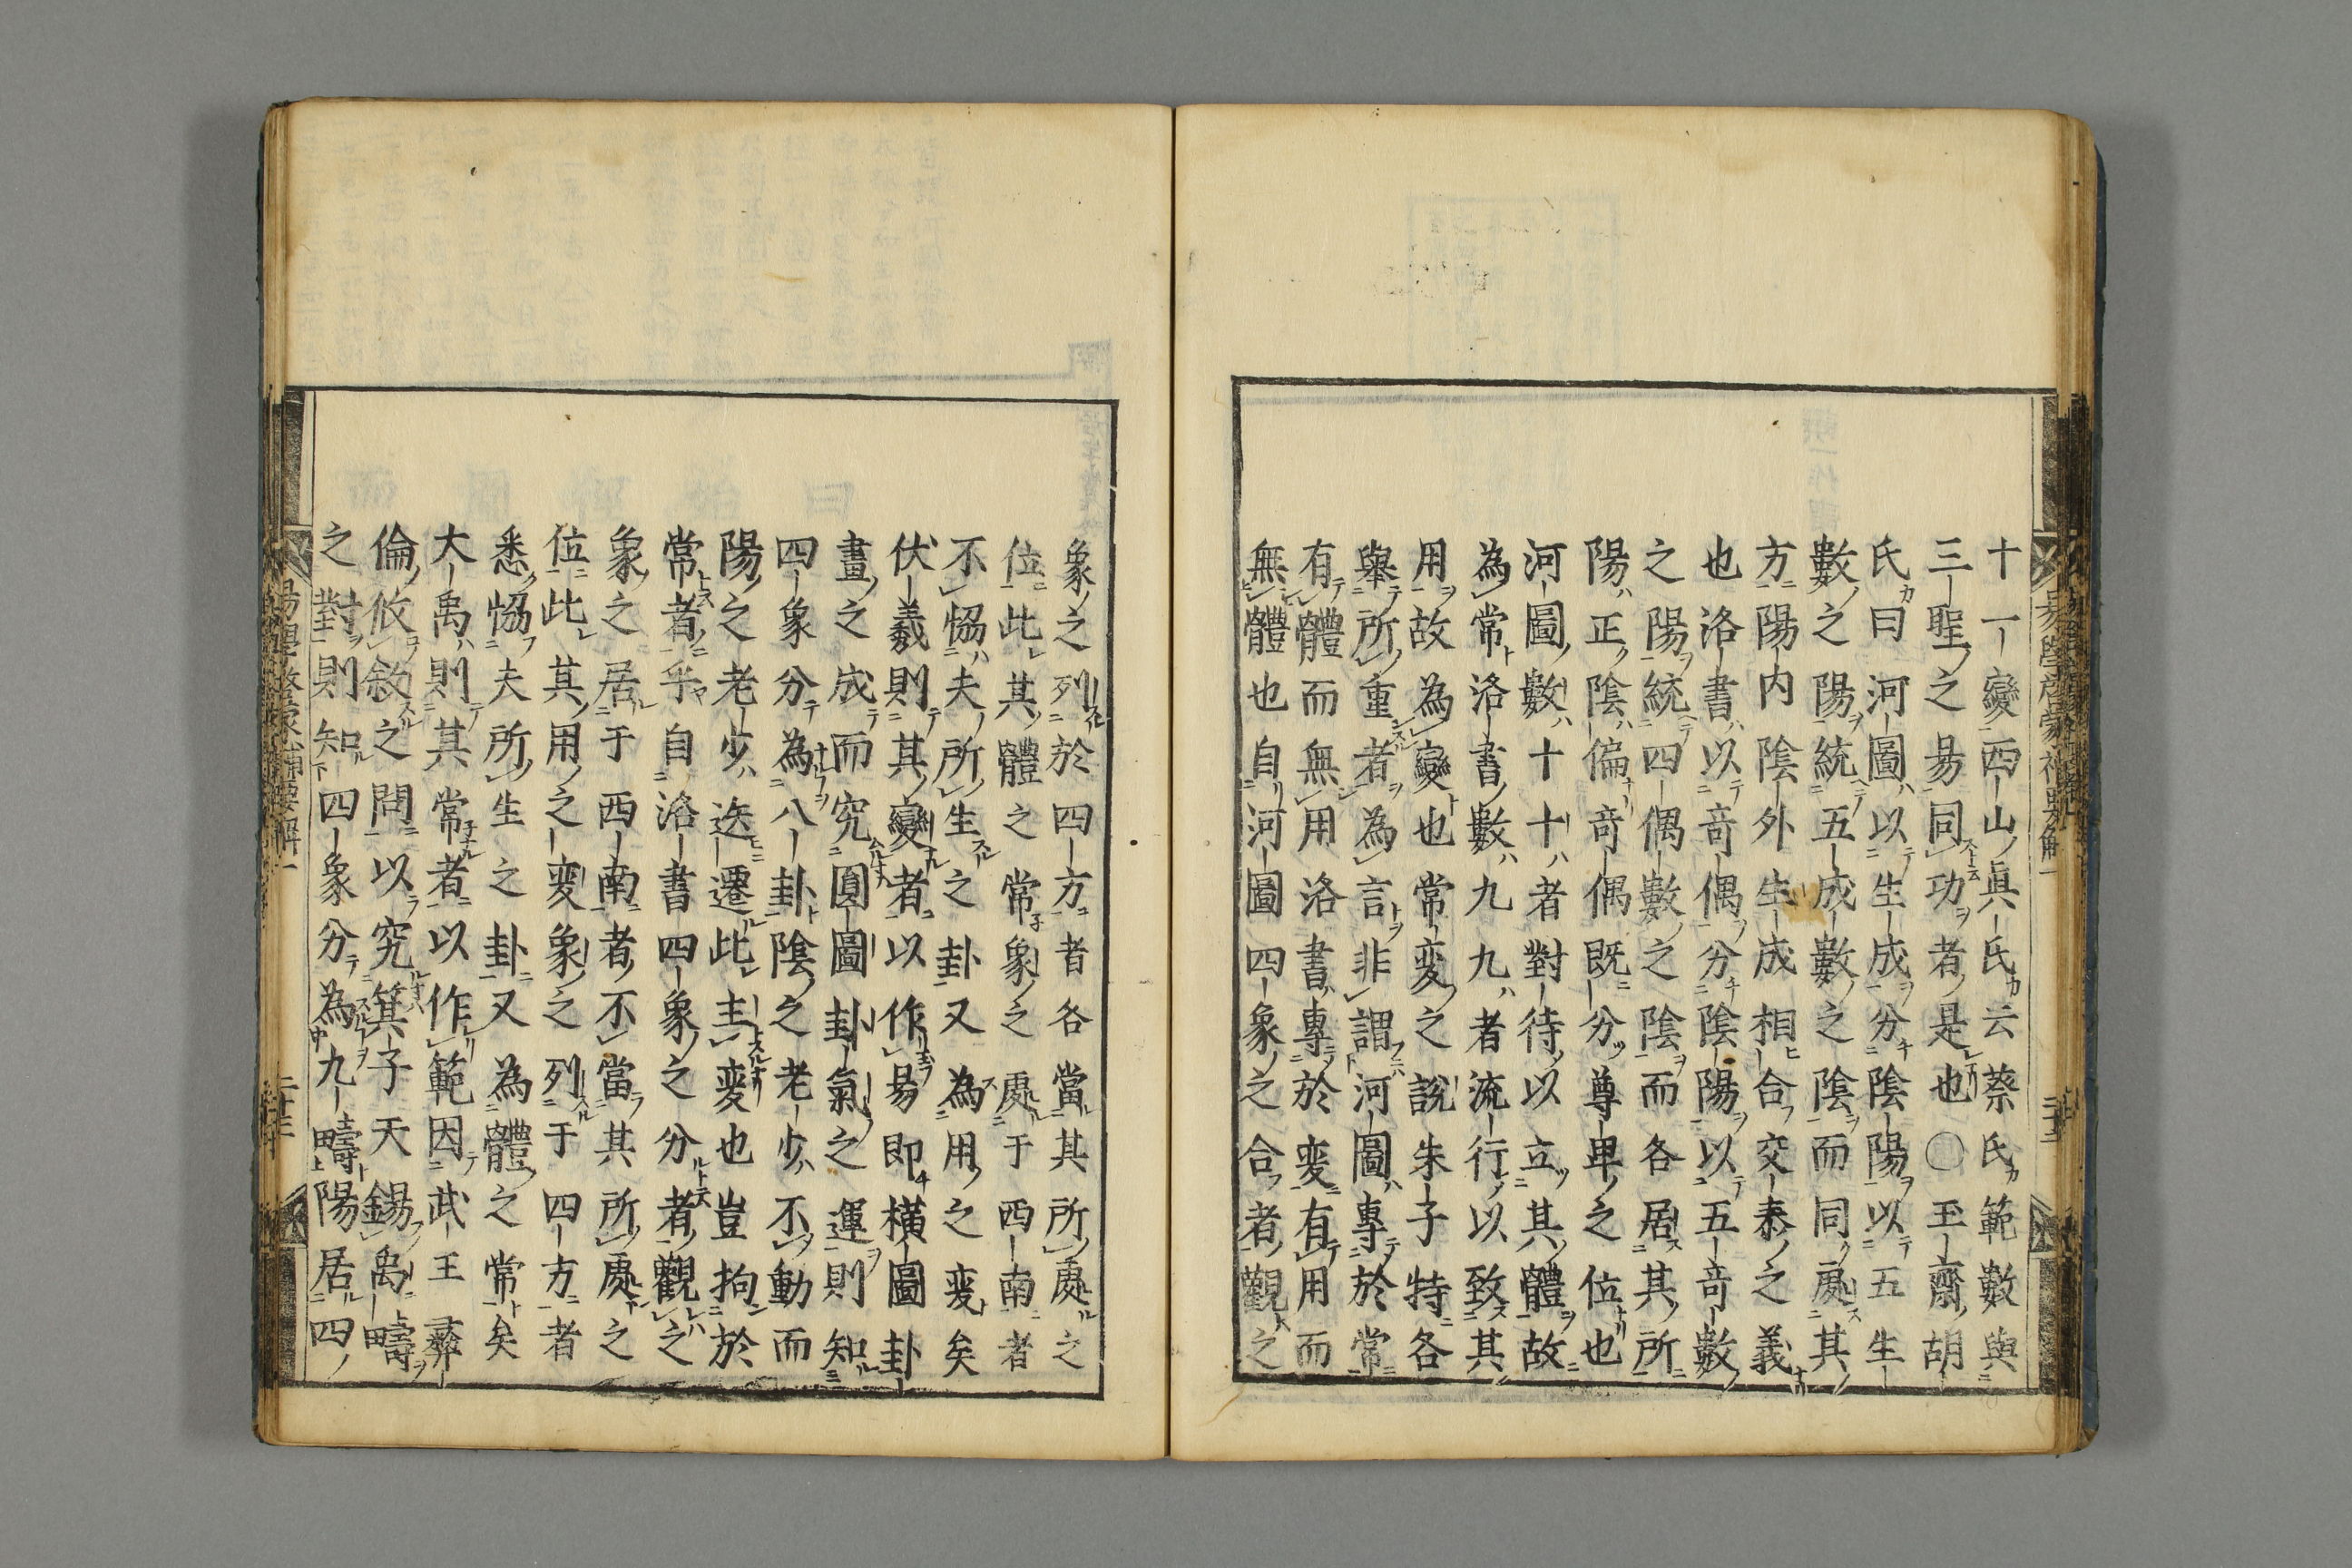 十一變西山眞氏云蔡氏範數與
三聖之昜同功者是也〇玉齋胡
氏曰河圖以生成分陰陽以五生
數之陽統五成數之陰而同處其
方陽內陰外生成相合交泰之義
也洛書以竒偶分陰陽以五竒數
之陽統四偶數之陰而各居其所
陽正陰偏竒偶既分尊卑之位也
河圖數十十者對待以立其體故
為常洛書數九九者流行以致其
用故為變也常変之說朱子特各
舉所重者為言非謂河圖專於常
有體而無用洛書專於変有用而
無體也自河圖四象之合者觀之
象之列於四方者各當其所處之
位此其體之常象之處于西南者
不恊夫所生之卦又為用之変矣
伏羲則其變者以作昜即橫圖卦
畫之成而究圓圖卦氣之運則知
四象分為八卦陰之老少不動而
陽之老少迭遷此主変也豈拘於
常者乎自洛書四象之分者觀之
象之居于西南者不當其所處之
位此其用之変象之列于四方者
悉恊夫所生之卦又為體之常矣
大禹則其常者以作範因武王彝
倫攸敘之問以究箕子天錫禹疇
之對則知四象分為九疇陽居四